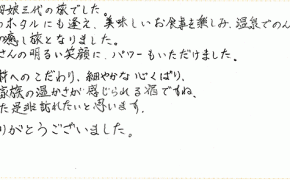 母娘三代の旅でした。
ホタルにも逢え、美味しいお食事を楽しみ、温泉でのん
癒し旅となりました。
さんの明るい笑顔に、パワーもいただけました。
材へのこだわり、細やかな心くばり、
家族の温かさが感じられる宿ですね。
た是非訪れたいと思います。
りがとうございました。